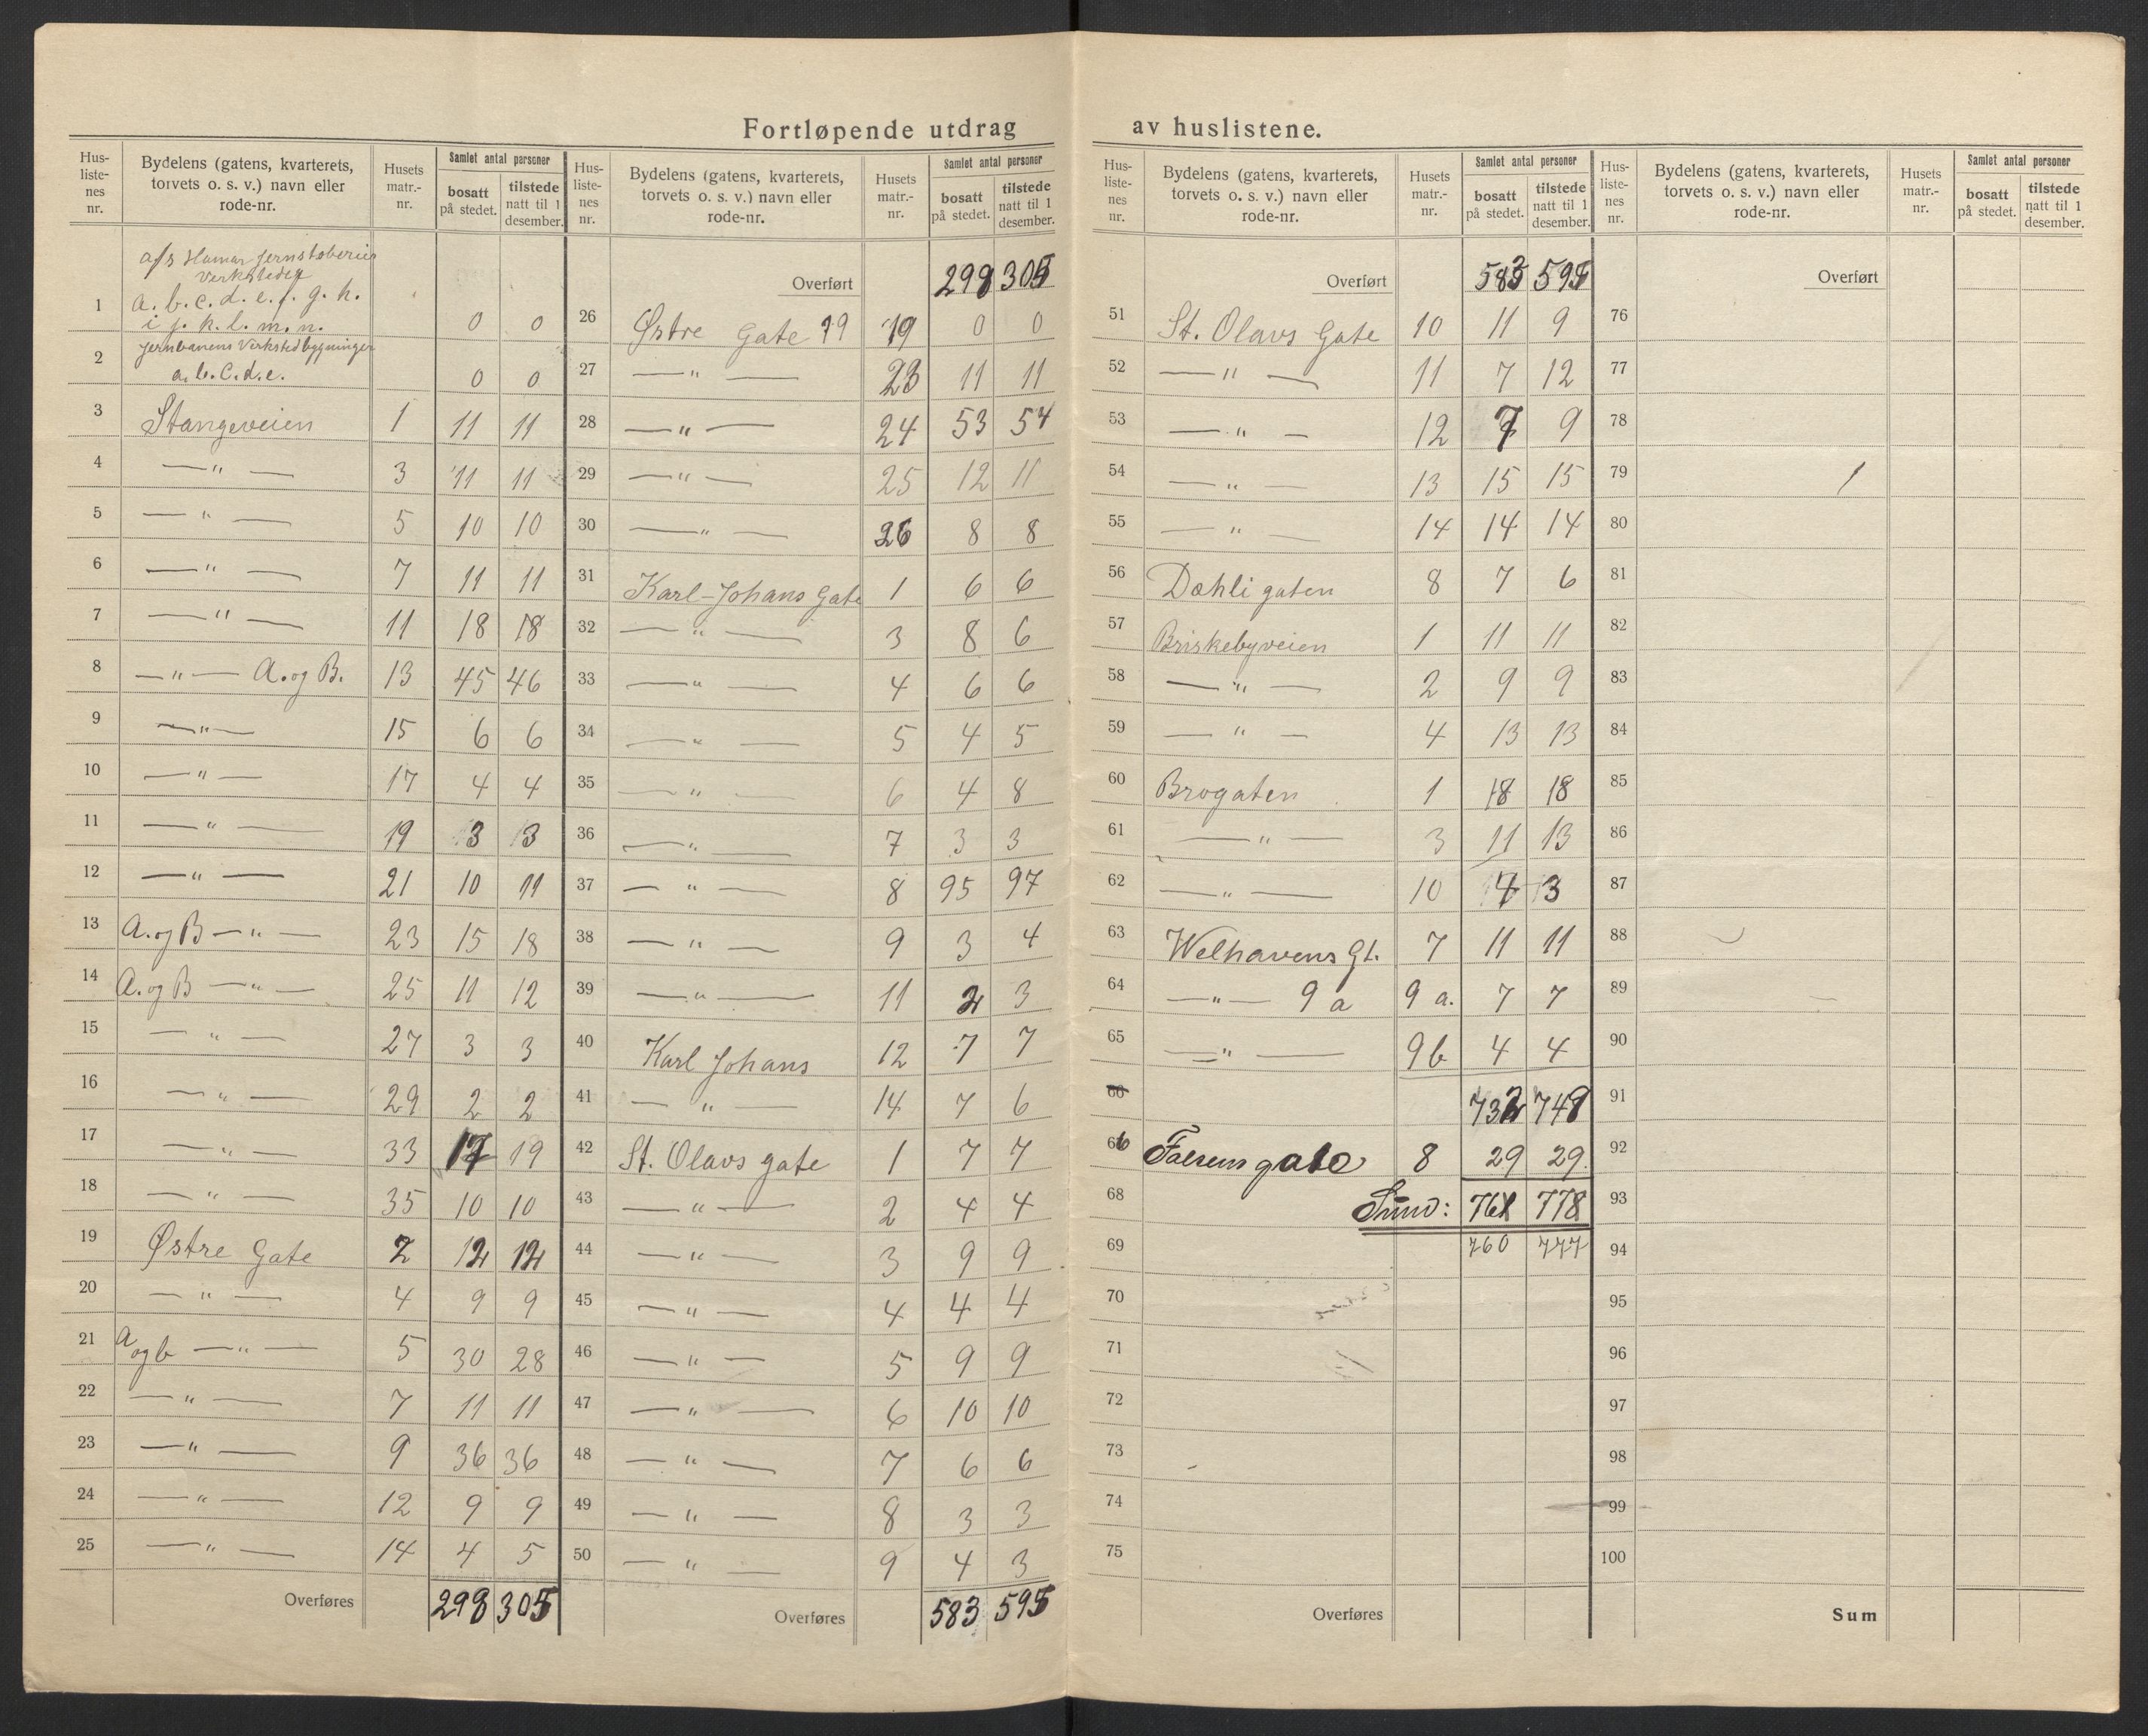 Fortløpende utdrag av huslistene.
Hus-listenes nr. Bydelens (gatens, kvarterets, torvets o. s. v.) navn eller rode-nr. Husets matr.-nr. Samlet antal personer bosatt på stedet. tilstede natt til 1 desember.
a/s Hamar Jernstøberi
Verksteder
1 a. b. c. d. e. f. g. h.
i j. k. l. m. n. 0 0
Jernbanens Verkstedbygninger
2 a. b. c. d. e. 0 0
3 Stangeveien 1 11 11
4 — " — 3 11 11
5 — " — 5 10 10
6 — " — 7 11 11
7 — " — 11 18 18
8 — " — A. og B. 13 45 46
9 — " — 15 6 6
10 — " — 17 4 4
11 — " — 19 3 3
12 — " — 21 10 11
13 A. og B — " — 23 15 18
14 A. og B — " — 25 11 12
15 — " — 27 3 3
16 — " — 29 2 2
17 — " — 33 17 19
18 — " — 35 10 10
19 Østre Gate 2 12 12
20 — " — 4 9 9
21 A og b — " — 5 30 28
22 — " — 7 11 11
23 — " — 9 36 36
24 — " — 12 9 9
25 — " — 14 4 5
Overføres 298 305
Hus-listenes nr. Bydelens (gatens, kvarterets, torvets o. s. v.) navn eller rode-nr. Husets matr.-nr. Samlet antal personer bosatt på stedet. tilstede natt til 1 desember.
Overført 298 305
26 Østre Gate 19 19 0 0
27 — " — 23 11 11
28 — " — 24 53 54
29 — " — 25 12 11
30 — " — 26 8 8
31 Karl-Johans Gate 1 6 6
32 — " — 3 8 6
33 — " — 4 6 6
34 — " — 5 4 5
35 — " — 6 4 8
36 — " — 7 3 3
37 — " — 8 95 97
38 — " — 9 3 4
39 — " — 11 2 3
40 Karl Johans 12 7 7
41 — " — 14 7 6
42 St. Olavs gate 1 7 7
43 — " — 2 4 4
44 — " — 3 9 9
45 — " — 4 4 4
46 — " — 5 9 9
47 — " — 6 10 10
48 — " — 7 6 6
49 — " — 8 3 3
50 — " — 9 4 3
Overføres 583 595
Hus-listenes nr. Bydelens (gatens, kvarterets, torvets o. s. v.) navn eller rode-nr. Husets matr.-nr. Samlet antal personer bosatt på stedet. tilstede natt til 1 desember.
Overført 583 595
51 St. Olavs Gate 10 11 9
52 — " — 11 7 12
53 — " — 12 7 9
54 — " — 13 15 15
55 — " — 14 14 14
56 Dæhli gaten 8 7 6
57 Briskebyveien 1 11 11
58 — " — 2 9 9
59 — " — 4 13 13
60 Brogaten 1 18 18
61 — " — 3 11 13
62 — " — 10 4 3
63 Welhavens Gt. 7 11 11
64 — " — 9 a 9 a. 7 7
65 — " — 9 b 4 4
66 732 748
66 Falsens gate 8 29 29.
68 Sum: 761 778
69 760 777
70
71
72
73
74
75
Overføres
Hus-listenes nr. Bydelens (gatens, kvarterets, torvets o. s. v.) navn eller rode-nr. Husets matr.-nr. Samlet antal personer bosatt på stedet. tilstede natt til 1 desember.
Overført
76
77
78
79
80
81
82
83
84
85
86
87
88
89
90
91
92
93
94
95
96
97
98
99
100
Sum